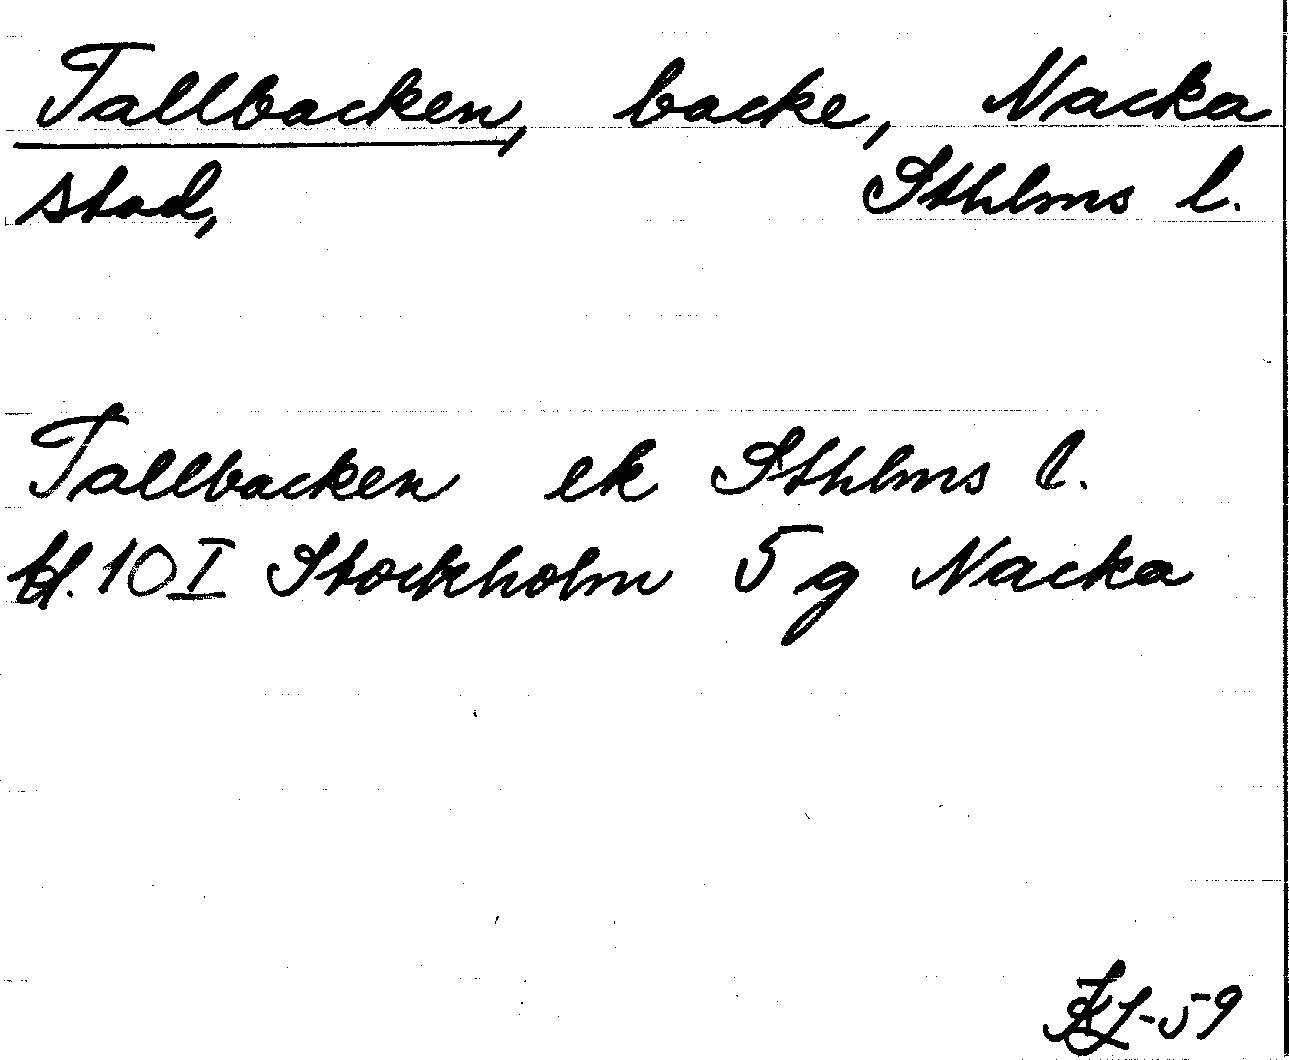 Tallbacken, backe, Nacka
stad, Sthlms l.
Tallbacken ek Sthlms l.
bl. 10 I Stockholm 5 g Nacka
-59